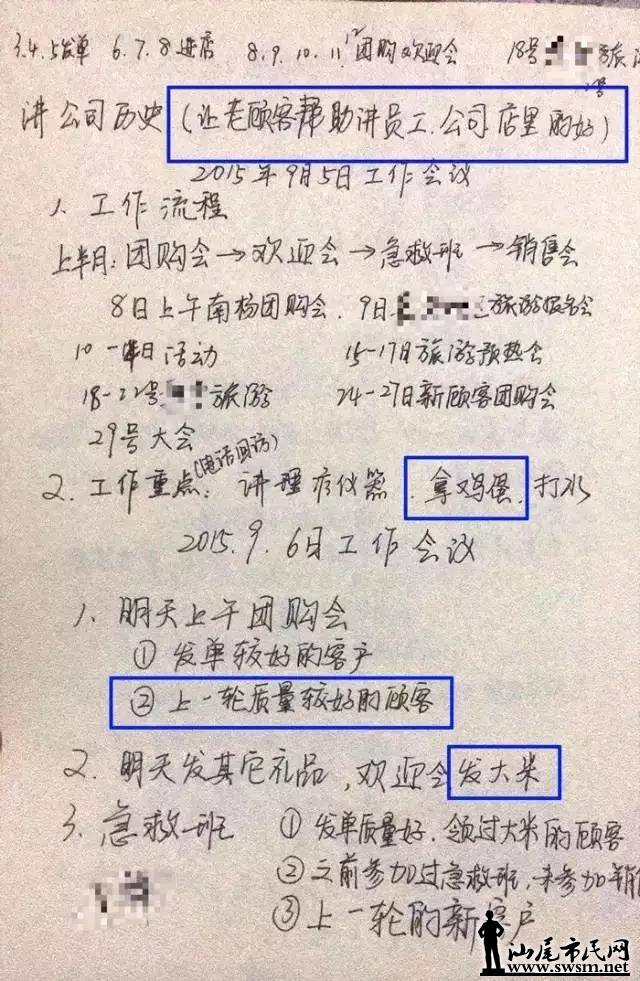 3.4.5发单 6.7.8进店 8.9.10.11.12团购欢迎会 18号 旅游
讲公司历史(让老顾客帮助讲员工.公司店里的好)
2015年9月5日工作会议
1. 工作流程
上半月:团购会→欢迎会→急救班→销售会
8日上午南杨团购会. 9日 旅游报名会
10- 日活动 15-17日旅游预热会
18-22号 旅游 24-27日新顾客团购会
29号大会
(电话回访)
2. 工作重点:讲理疗仪器.拿鸡蛋.打水
2015.9.6日工作会议
1. 明天上午团购会
① 发单较好的客户
② 上一轮质量较好的顾客
2. 明天发其它礼品,欢迎会发大米
3. 急救班 ① 发单质量好.领过大米的顾客
② 之前参加过急救班,未参加销
③ 上一轮的新客户
汕尾市民网
www.swsm.net